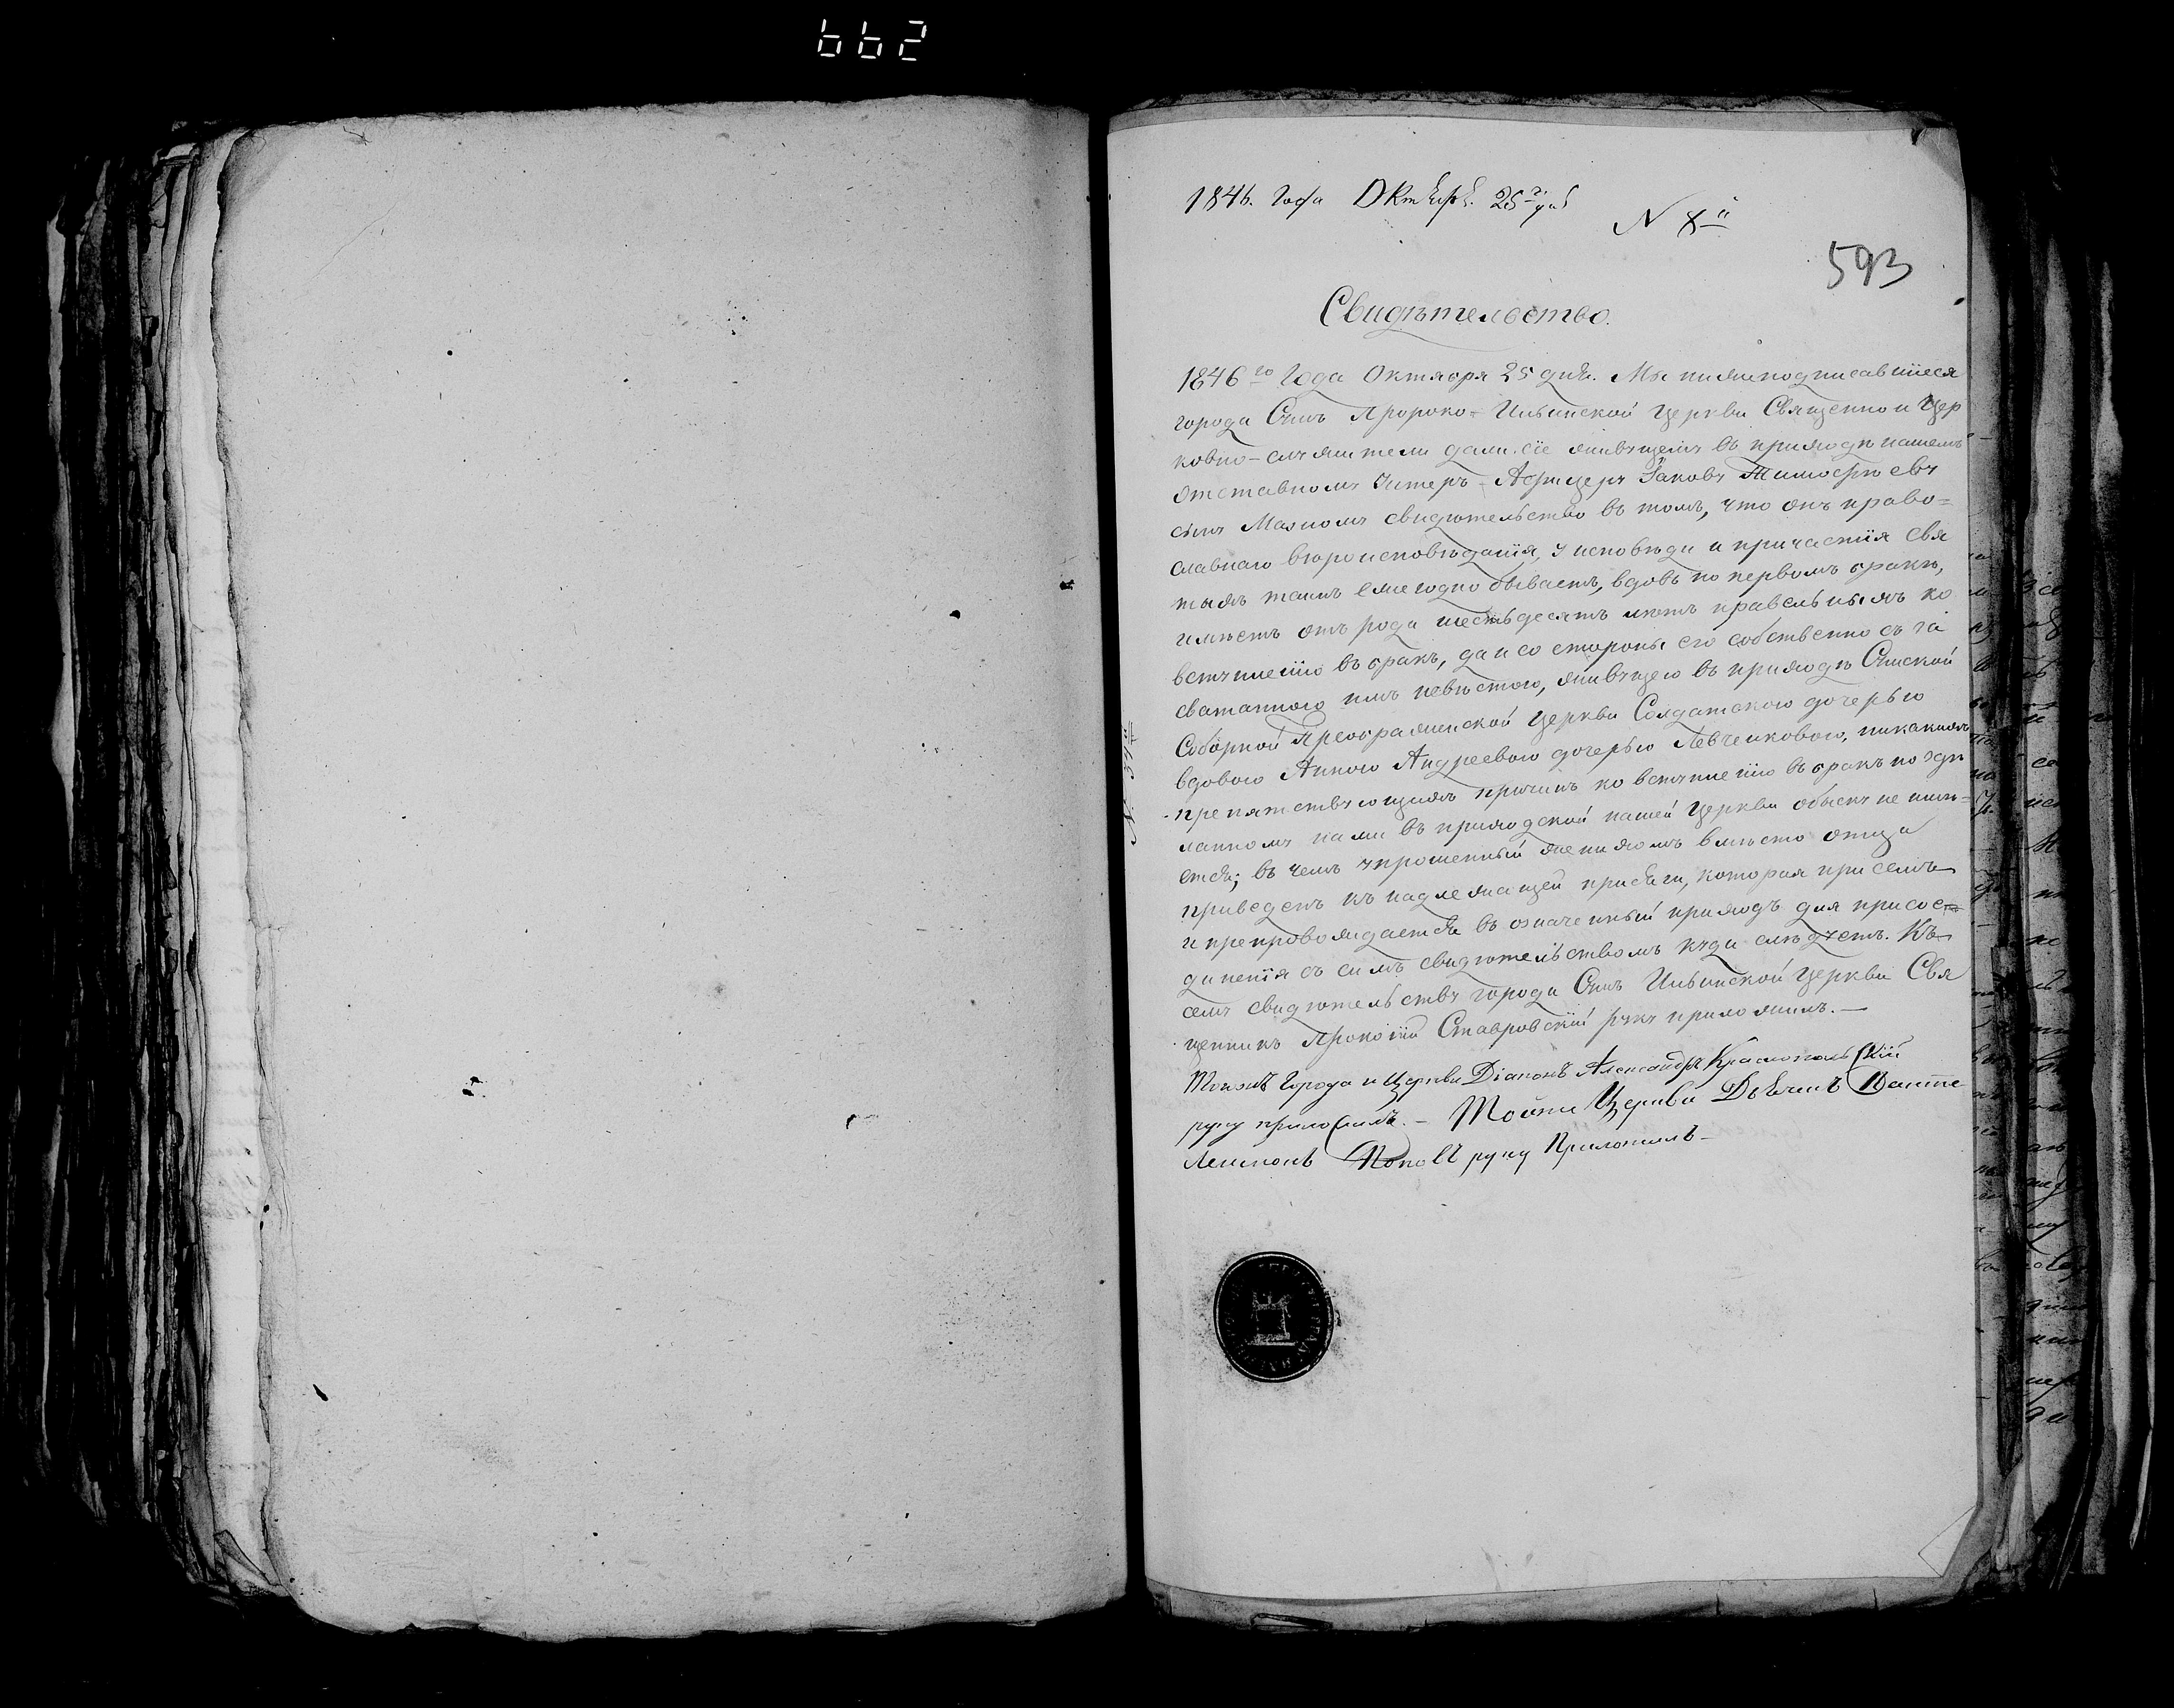 662
1846. Года Октября. 25го дня
N 8й
593
Свидѣтельство.
1846го Года Октября 25 дня. Мы нижеподписавшиеся
города Сумъ Пророко-Ильинской Церкви Священно и Цер
ковно-служители дали сіе живущему въ приходѣ нашемъ
отставному Унтеръ-Афицеру Іакову Тимофѣеву
сыну свидѣтельство въ томъ, что онъ право=
славнаго вѣроисповѣданія, у исповѣди и причастія Свя
тыхъ таинъ ежегодно бываетъ, вдовъ по первомъ бракѣ,
имѣетъ отъ рода шестьдесятъ лѣтъ ко
вступленію въ бракъ, да и со стороны его собственно съ за
сватанною имъ невѣстою, живущею въ приходѣ Сумской
Соборной Преображенской Церкви Солдатскою дочерью
вдовою Анною Андреевою дочерью Левченковою, никакихъ
препятствующихъ причинъ ко вступленію въ бракъ по здѣ
ланному нами въ приходской нашей Церкви обыску не имѣ=
ется; въ чемъ упрошенный женихомъ вмѣсто отца
приведенъ къ надлежащей присяги, которая при семъ
и препровождается въ означенный приходъ для присое
диненія съ симъ свидѣтельствомъ куда слѣдуетъ. Къ
сему свидѣтельству города Сумъ Ильинской Церкви Свя
щенникъ Прокопій Ставровскій руку приложилъ.—
Города и Церкви Діаконъ Александръ Краснопольскій
руку приложилъ.— Тойже Церкви Дьячекъ
Поповъ руку Приложилъ—